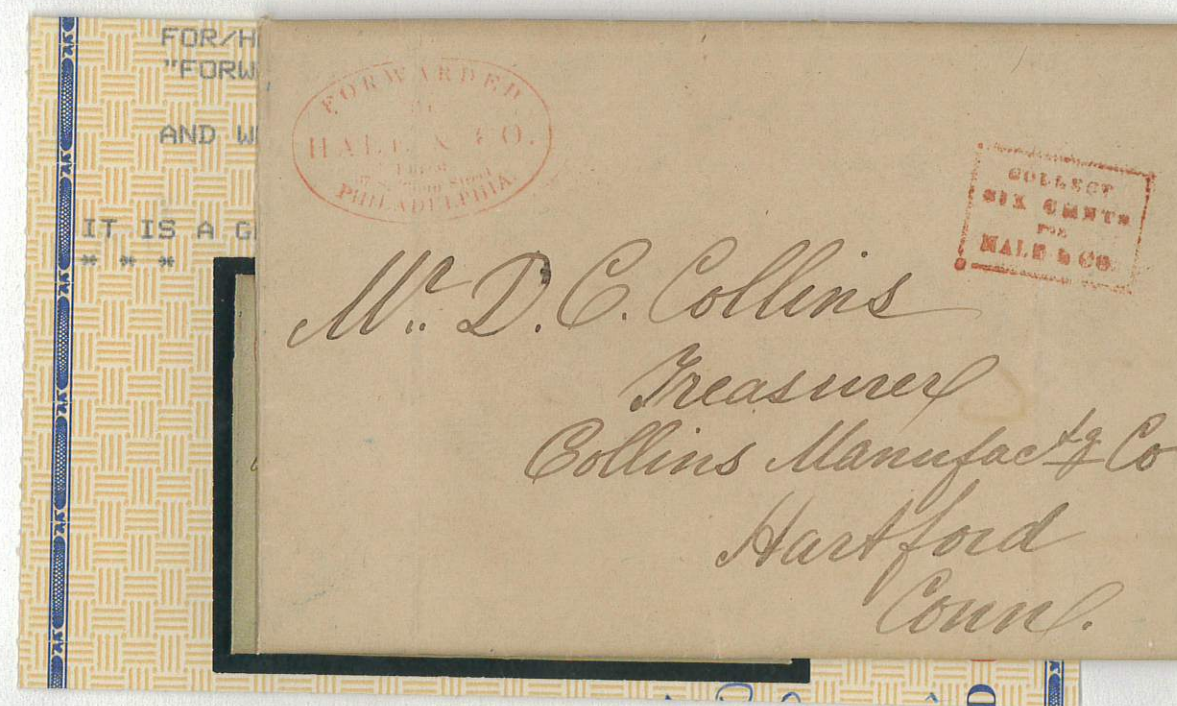 FOR/H
"FORW
AND W
IT IS A G
* * *
FORWARDED
HALE & CO.
PHILADELPHIA.
COLLECT
SIX CENTS
FOR
HALE & CO
Mr. D. C. Collins
Treasurer
Collins Manufactg Co
Hartford
Conn.